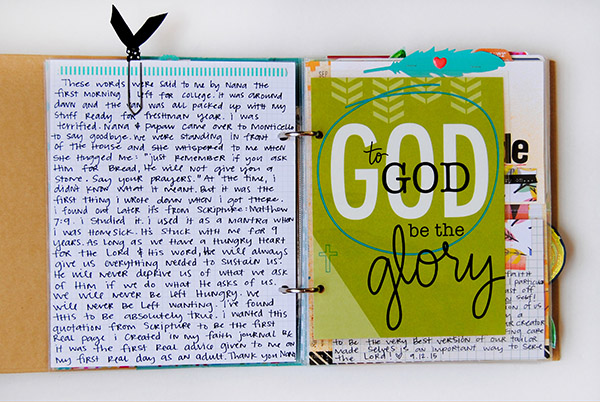 These words were said to me by Nana the
first morning I left for college. It was around
dawn and the van was all packed up with my
stuff ready for freshman year. I was
terrified. Nana & Papaw came over to Monticello
to say goodbye. We were standing in front
of the house and she whispered to me when
she hugged me: "Just remember if you ask
Him for Bread, He will not give you a
stone. Say your prayers." At the time, I
didn't know what it meant. But it was the
first thing I wrote down when I got there.
I found out later it's from Scripture: Matthew
7:9. I studied it. I used it as a mantra when
I was homesick. It's stuck with me for 9
years. As long as we have a hungry heart
for the Lord & His word, He will always
give us everything needed to sustain us.
He will never deprive us of what we ask
of Him if we do what He asks of us.
We will never be left hungry. We
will never be left wanting. I've found
this to be absolutely true. I wanted this
quotation from Scripture to be the first
real page I created in my faith journal bc
it was the first real advice given to me on
my first real day as an adult. Thank you Nana
SEP
GOD
to
GOD
be the
glory
de
faith
particular
Self!
of us
creator
to be the very best version of our tailor
made selves is an important way to serve
the Lord! 9.12.15